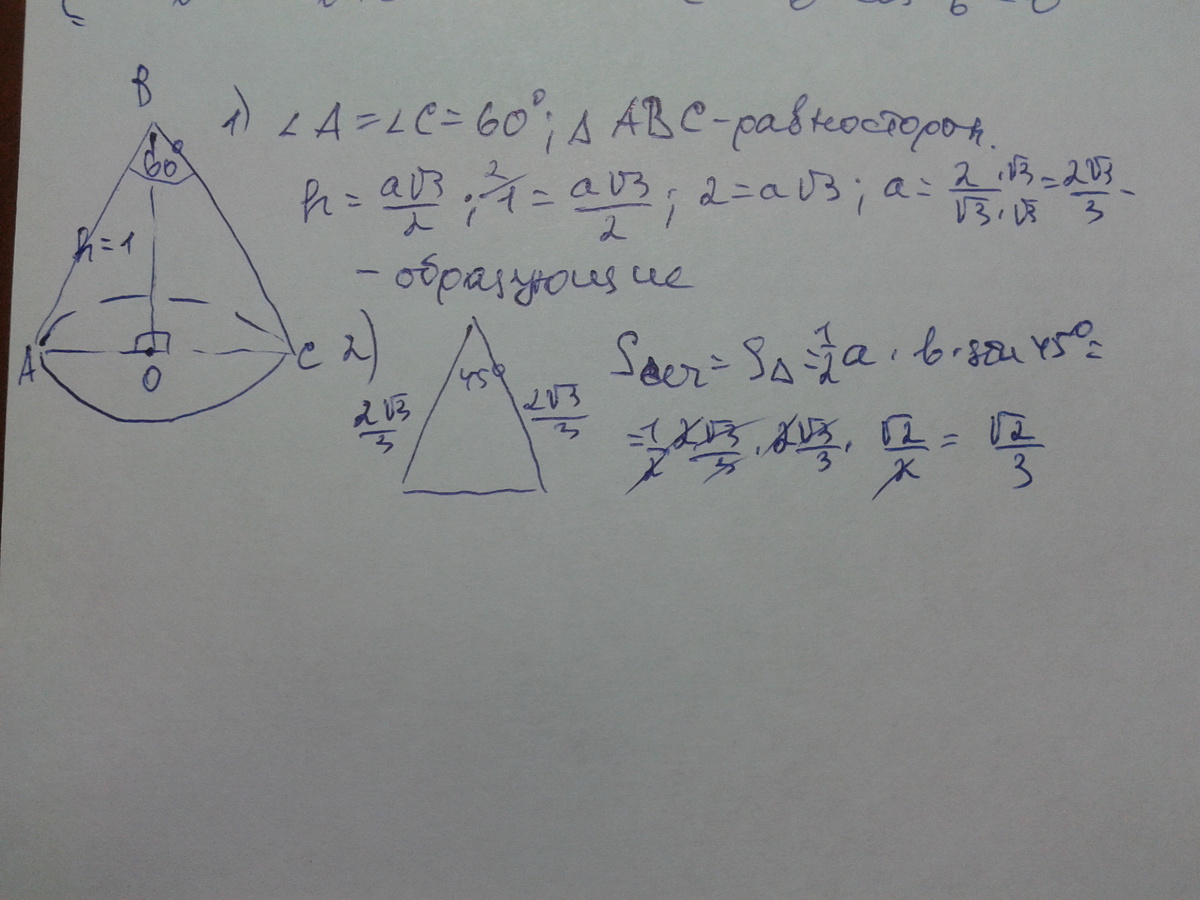 B
60°
h=1
A
O
C
1) ∠A=∠C=60°; Δ ABC-равносторон.
h = a√3/2 ; 2/1 = a√3/2 ; 2=a√3 ; a= 2/√3 ·√3/·√3 = 2√3/3 -
- образующие
2)
45°
2√3/3
2√3/3
Sсеч = SΔ = 1/2 a · b · sin 45° =
= 1/2 · 2√3/3 · 2√3/3 · √2/2 = √2/3